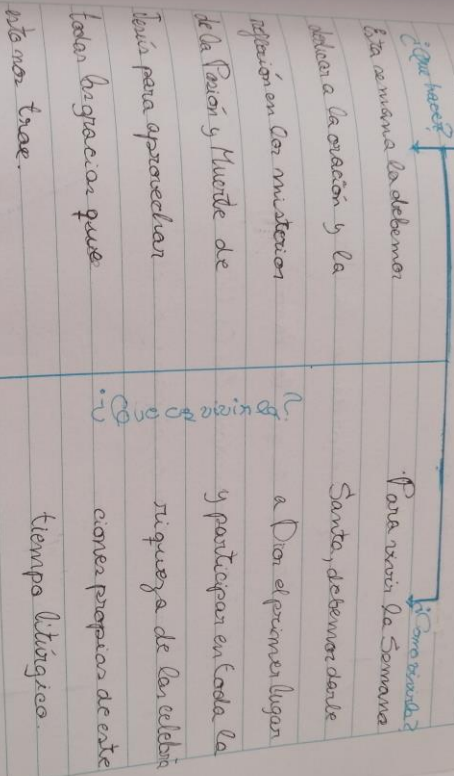 ¿Qué hacer?
Esta semana la debemos
dedicar a la oración y la
reflexión en los misterios
de la Pasión y Muerte de
Jesús para aprovechar
todas las gracias que
esto nos trae.
¿Cómo vivirla?
Para vivir la Semana
Santa, debemos darle
a Dios el primer lugar
y participar en toda la
riqueza de las celebra
ciones propias de este
tiempo litúrgico.
¿Que es vivirla?